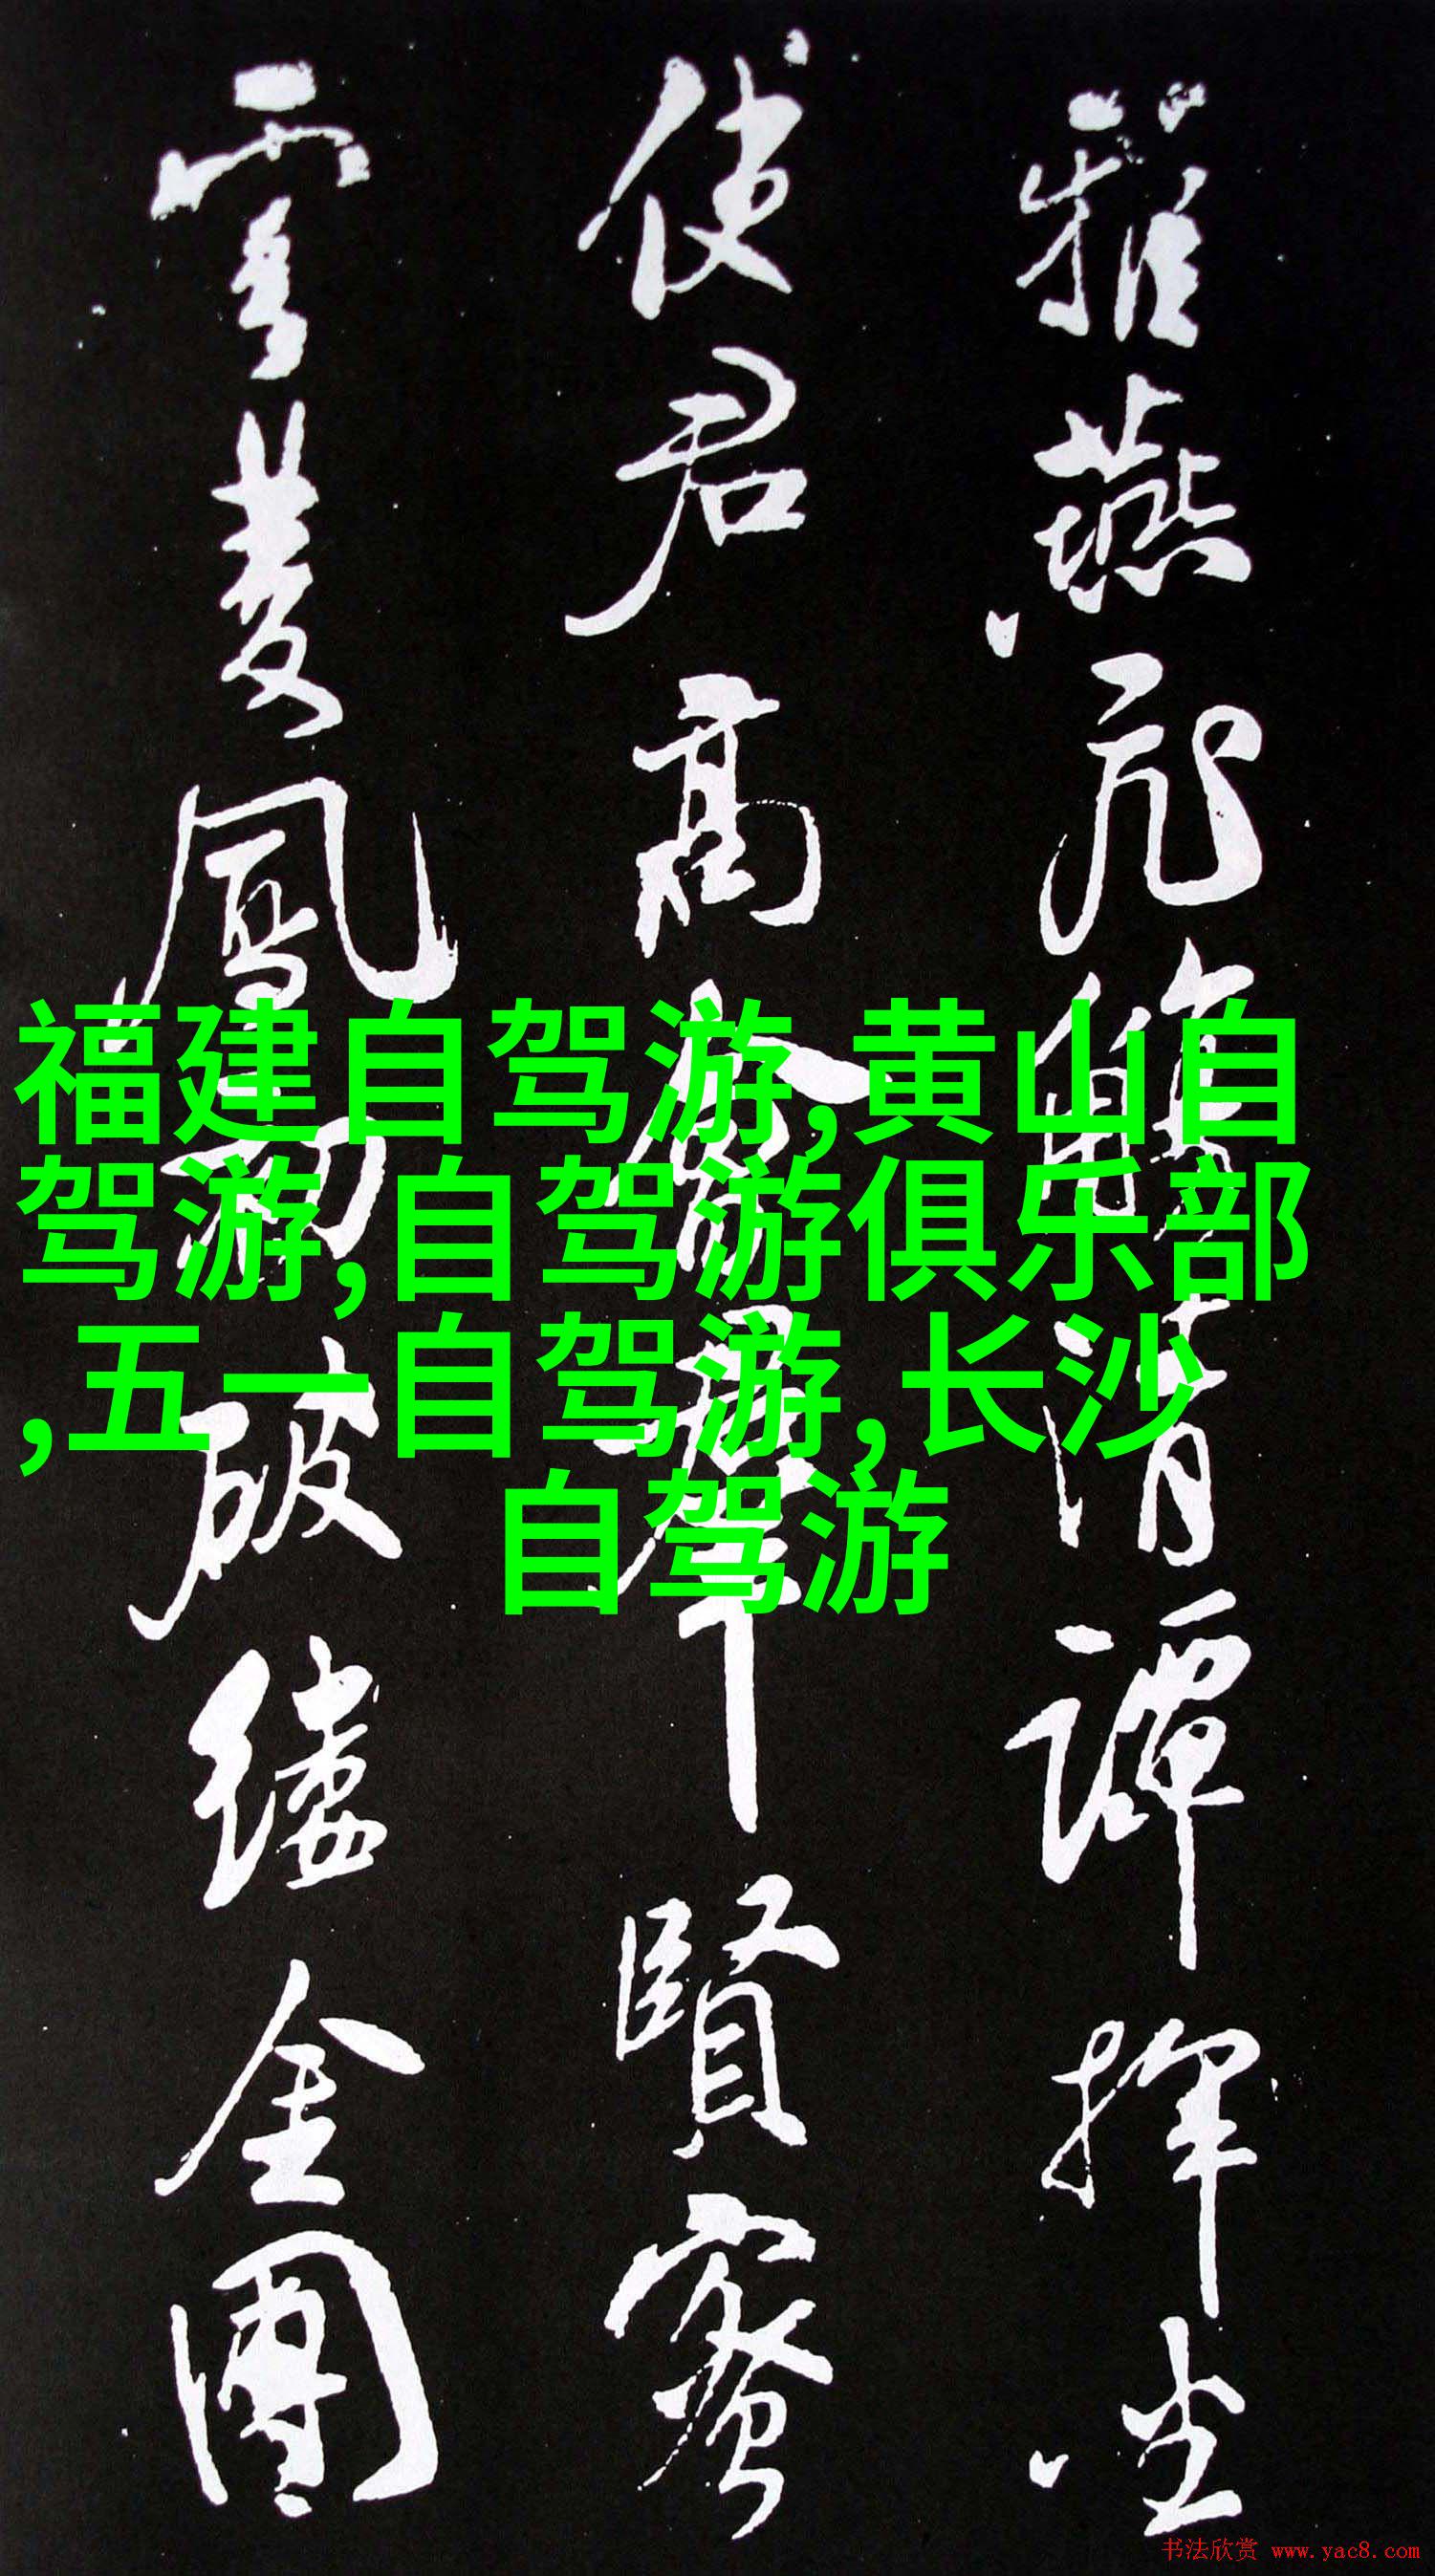 雅燕飛觴清譚揮坐
使君高會羣賢
雲蒙鳳初破縷金團
福建自驾游,黄山自
驾游,自驾游俱乐部
,五一自驾游,长沙
自驾游
书法欣赏 www.yac8.com